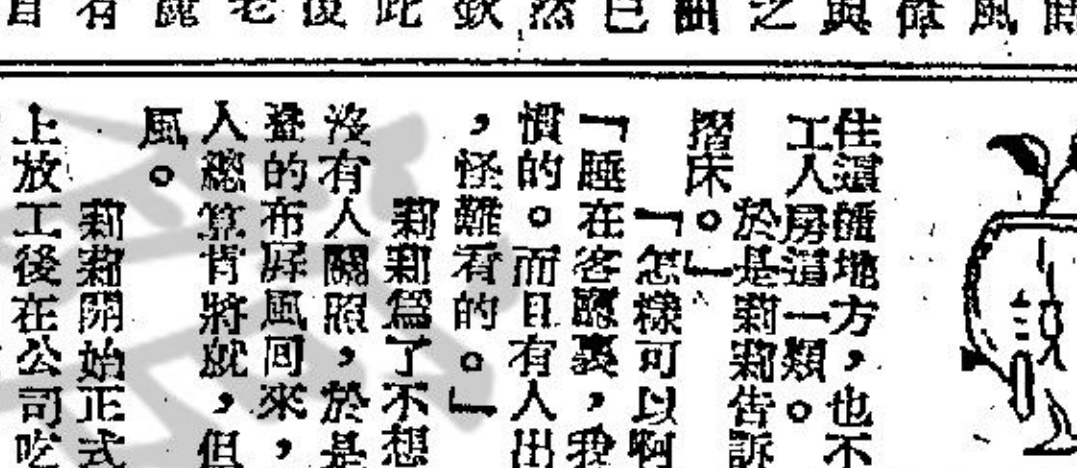 住這種地方，也不
工人房這一類。
於是莉莉告訴
摺床。」
「怎樣可以啊
「睡在客廳裏，我
慣的。而且有人出
，怪難看的。」
莉莉為了不想
沒有人關照，於是
叠的布屏風回來，
人總算肯將就，但
風。
莉莉開始正式
上放工後在公司吃